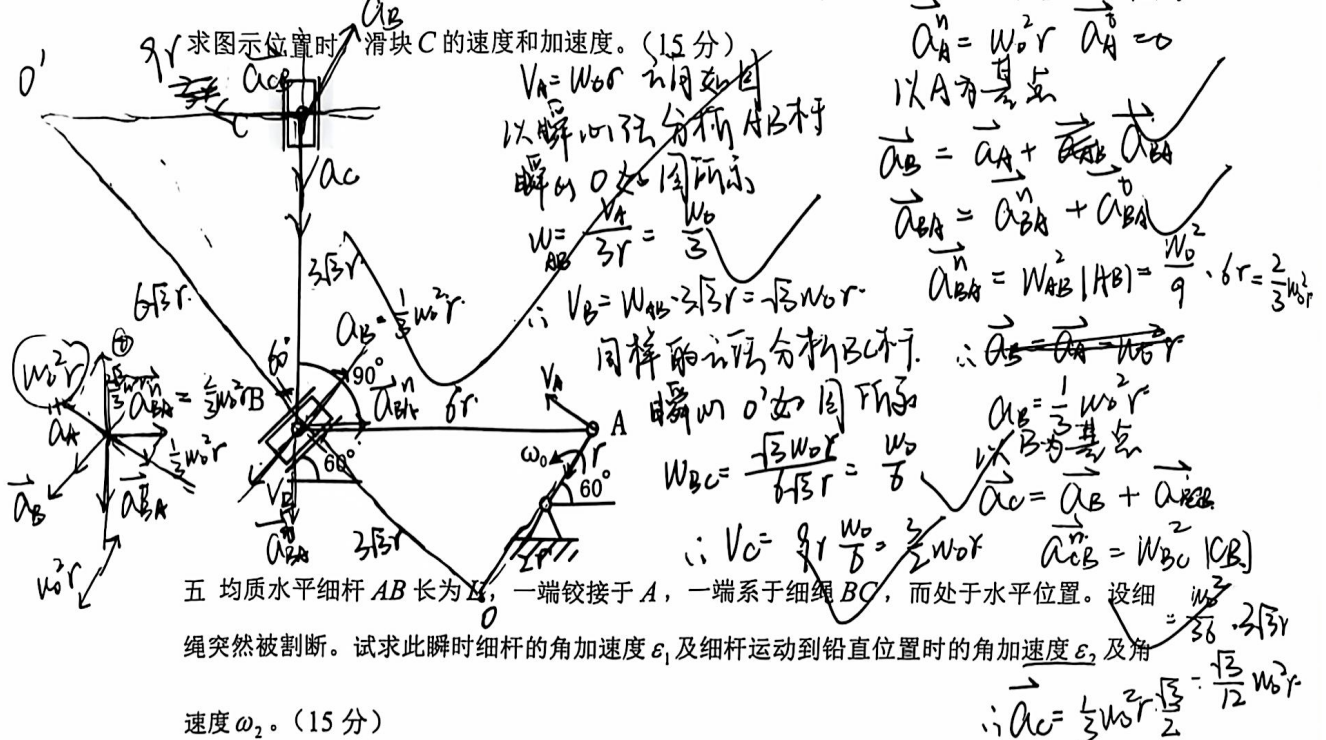 求图示位置时，滑块C的速度和加速度。（15分）
V_A = ω₀r 方向如图
以瞬心法分析AB杆
瞬心O如图所示
ω_AB = V_A/3r = ω₀/3
∴ V_B = ω_AB·3√3r = √3ω₀r
同样的方法分析BC杆
瞬心O'如图所示
ω_BC = √3ω₀r/6√3r = ω₀/6
∴ V_C = 9r ω₀/6 = 3/2 ω₀r
a_A^n = ω₀²r a_A^t = 0
以A为基点
a_B = a_A + a_BA
a_BA = a_BA^n + a_BA^t
a_BA^n = ω_AB²|AB| = ω₀²/9 · 6r = 2/3 ω₀²r
∴ a_B = a_A = ω₀²r
a_B = 1/3 ω₀²r
以B为基点
a_C = a_B + a_CB
a_CB^n = ω_BC²|CB|
= ω₀²/36 · 3√3r
= √3/12 ω₀²r
∴ a_C = 1/3 ω₀²r · √3/2
O'
9r
a_CB
a_B
C
a_C
3√3r
6√3r
a_B = 1/3 ω₀²r
60°
90°
a_BA^n
6r
V_A
A
B
60°
ω₀
r
60°
V_B
a_BA
3√3r
2r
O
ω₀²r
a_A
a_BA^n = 2/3 ω₀²r
1/3 ω₀²r
a_B
a_BA
ω₀²r
五 均质水平细杆AB长为l，一端铰接于A，一端系于细绳BC，而处于水平位置。设细
绳突然被割断。试求此瞬时细杆的角加速度ε₁及细杆运动到铅直位置时的角加速度ε₂及角
速度ω₂。（15分）